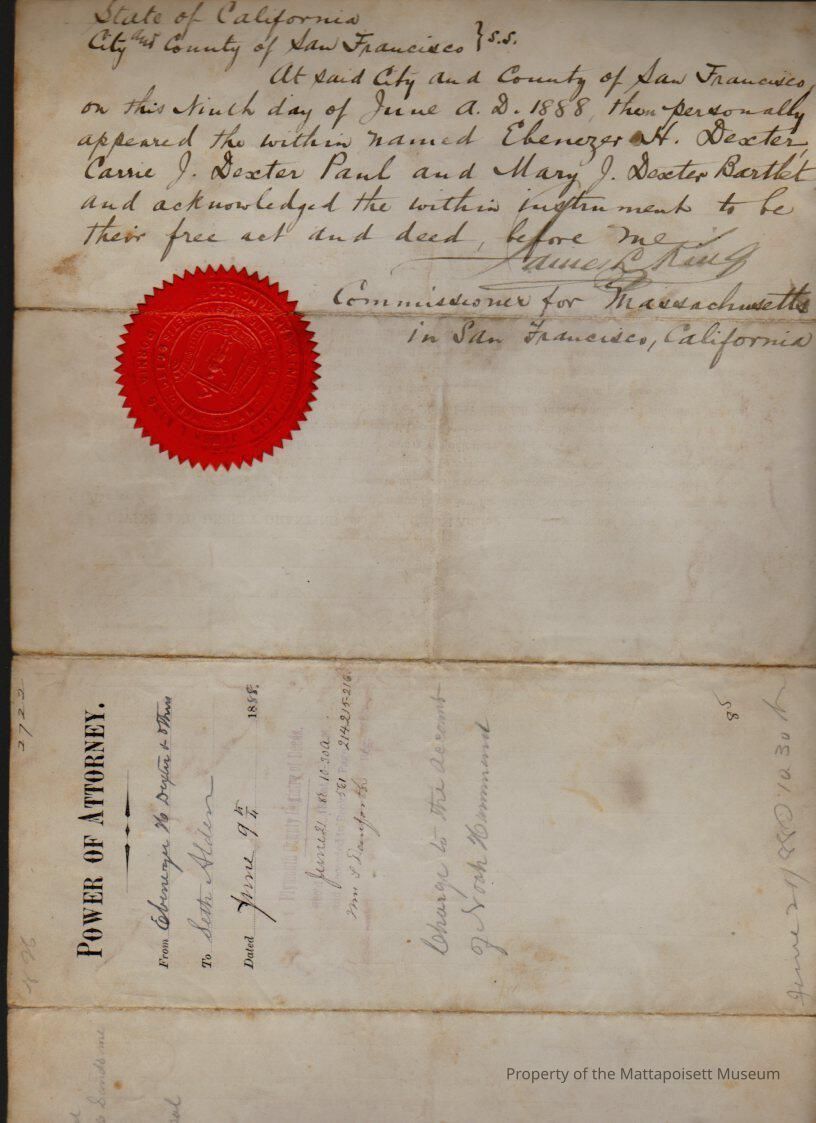 State of California
City and County of San Francisco } s.s.
At said City and County of San Francisco,
on this Ninth day of June A. D. 1888, then personally
appeared the within named Ebenezer H. Dexter,
Carrie J. Dexter Paul and Mary J. Dexter Bartlet
and acknowledged the within instrument to be
their free act and deed, before me
James L. King
Commissioner for Massachusetts
in San Francisco, California
2722
POWER OF ATTORNEY.
From Ebenezer H Dexter & others
To Seth Alden
Dated June 9th 1888.
Plymouth County Registry of Deeds.
June 21 10-30 a
561 Page 214-215-216
Wm S Danforth
Charge to the account
of Noah Hammond
85
June 21 1888 10 30
Property of the Mattapoisett Museum